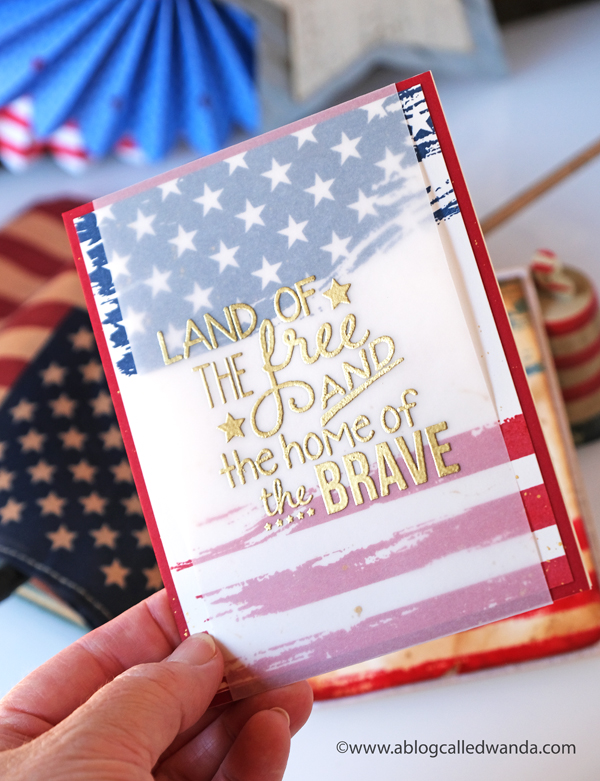 LAND OF
THE free
AND
the home of
the BRAVE
©www.ablogcalledwanda.com